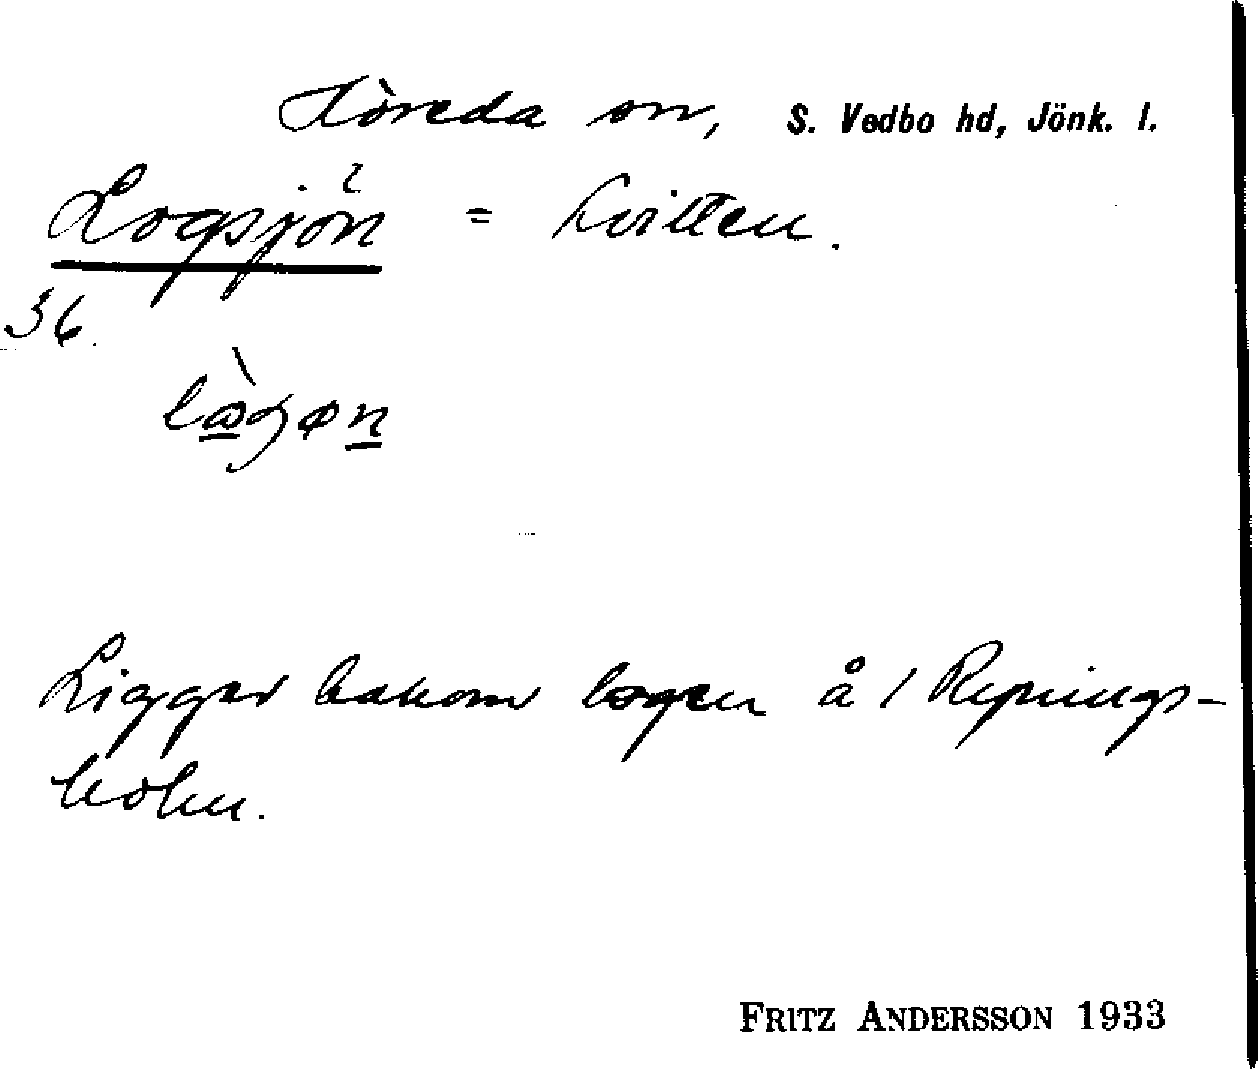 Höreda sn, S. Vedbo hd, Jönk. l.
Logsjön = Kvitten.
36.
Ligger bakom logen å / Repnings-
holm.
FRITZ ANDERSSON 1933